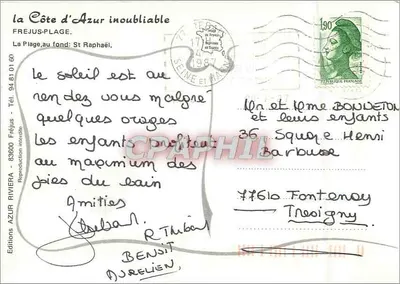 la Côte d'Azur inoubliable
FREJUS-PLAGE.
La Plage, au fond: St Raphaël.
SEINE ET
1987
1,90
le soleil est au
rendez vous malgré
quelques orages
les enfants profitent
au maximum des
joies du bain
Amities
R Thibaut
BENOIT
AURELIEN
Mr et Mme
et leurs enfants
36 Square Henri
Barbusse
77610 Fontenay
Tresigny
CPAPHIL.COM
Editions AZUR RIVIERA - 83600 Fréjus - Tél. 94 81 01 60
Reproduction interdite